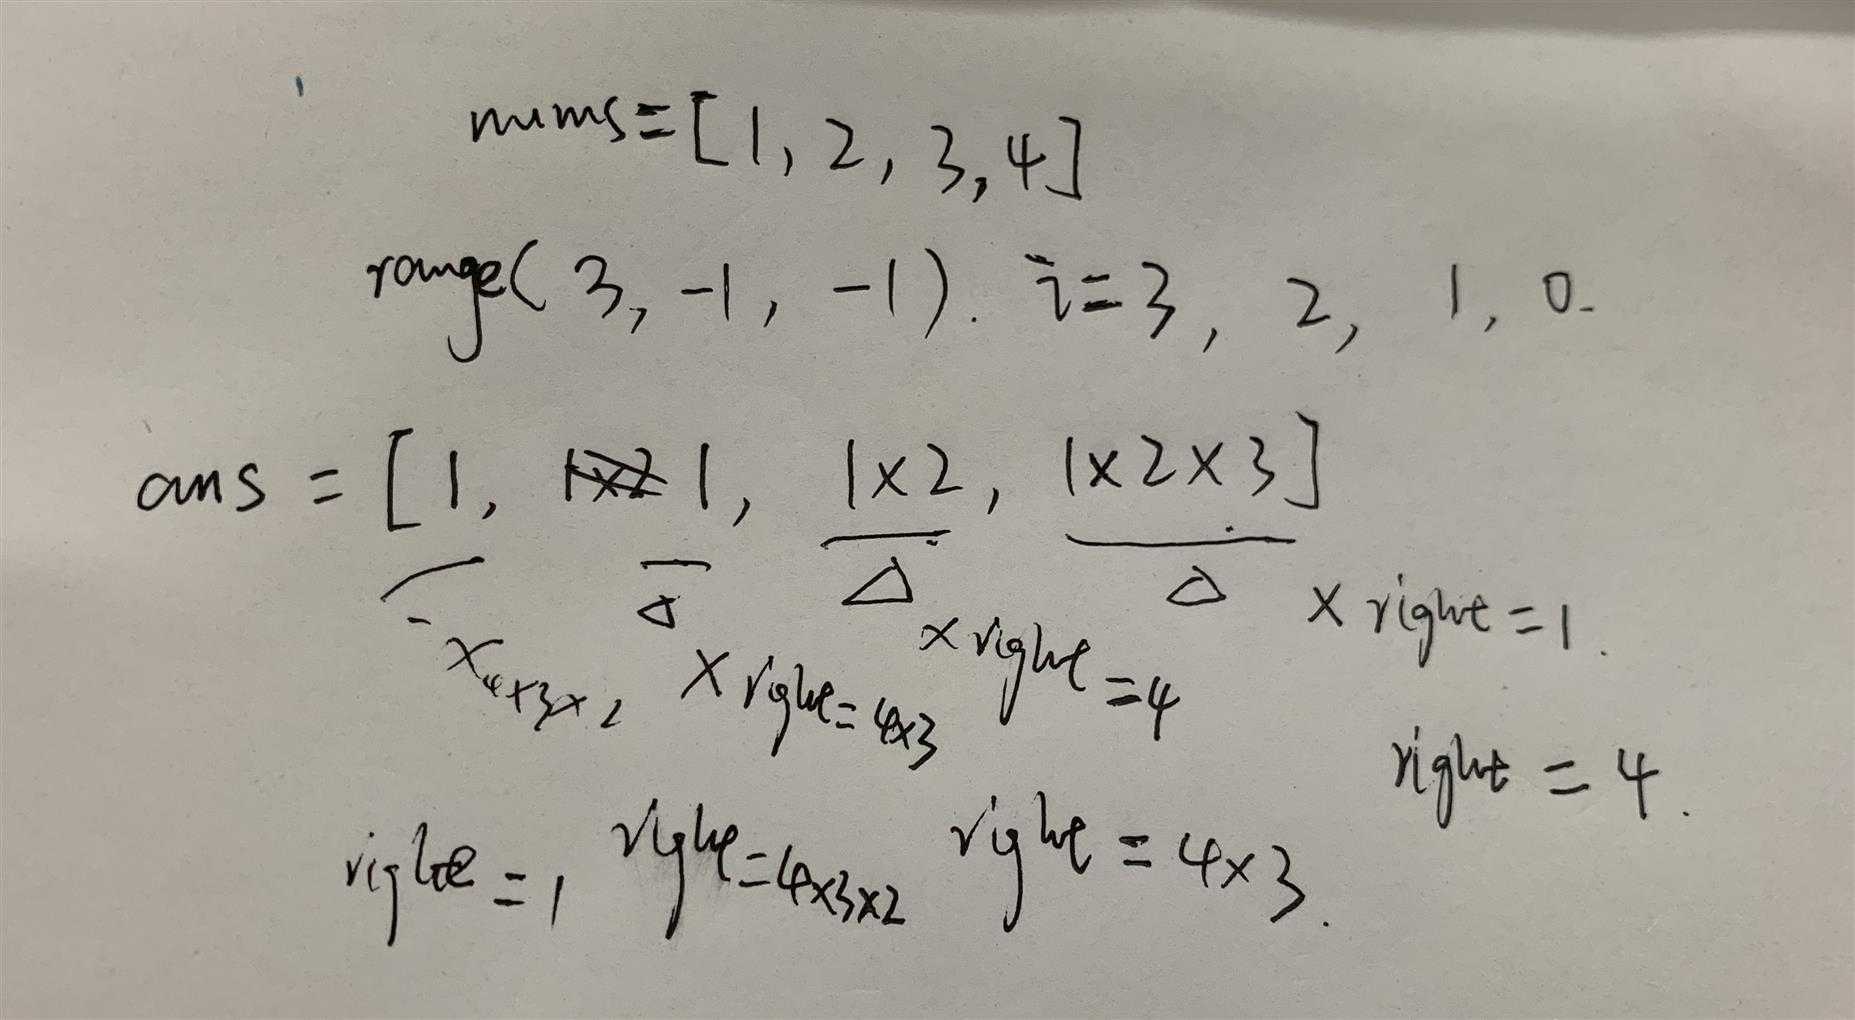 nums=[1, 2, 3, 4]
range(3, -1, -1). i=3, 2, 1, 0.
ans = [1, 1, 1×2, 1×2×3]
×4×3×2 ×right=4×3 ×right=4 ×right=1.
right = 4.
right=1, right=4×3×2 right=4×3.